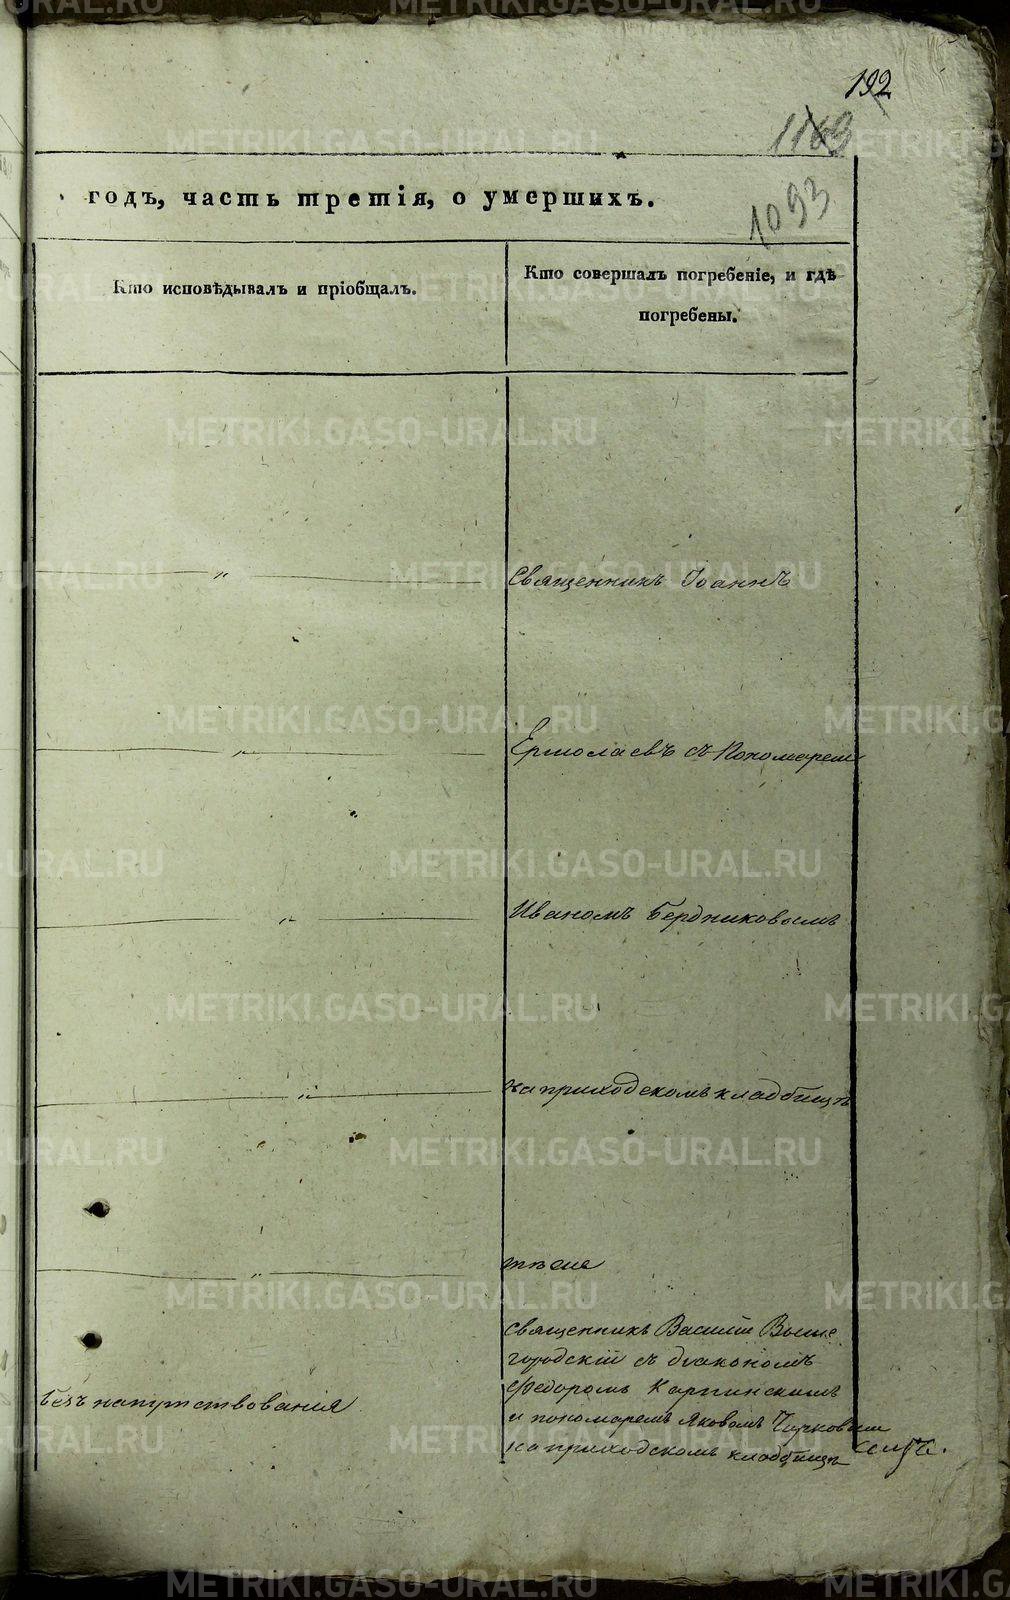 192
1163
1093
годъ, часть третія, о умершихъ.
Кто исповѣдывалъ и пріобщалъ.
Кто совершалъ погребеніе, и гдѣ
погребены.
Священникъ Іоаннъ
Ермолаевъ съ Пономаремъ
Иваномъ Бердниковымъ
на приходскомъ кладбищѣ
тѣла
Священникъ Василій Выше
городскій съ діакономъ
Федоромъ Карпинскимъ
безъ напутствованія
и пономаремъ Яковомъ Чирковым
на приходскомъ кладбищѣ
METRIKI.GASO-URAL.RU